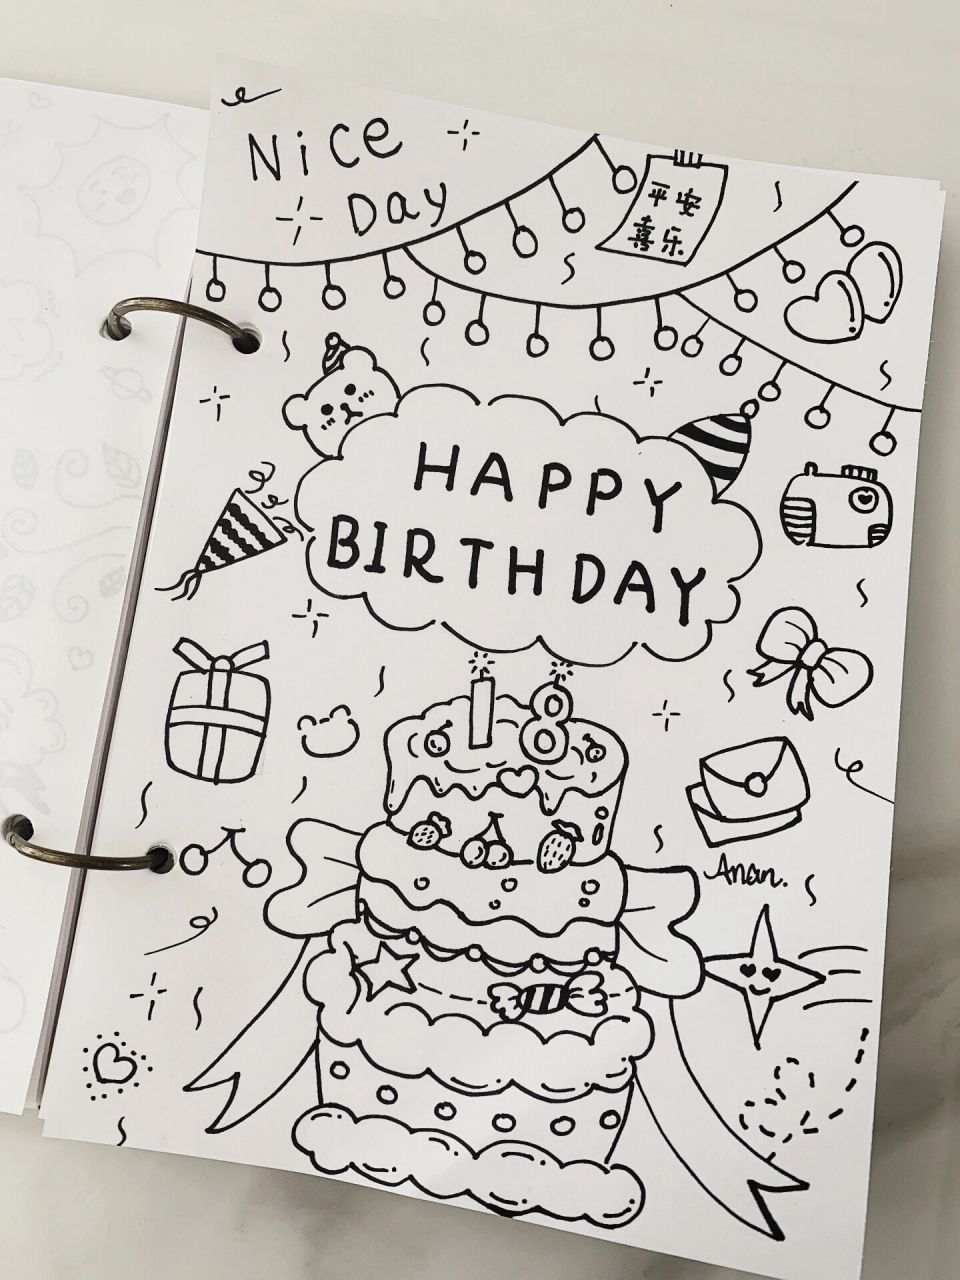 Nice
Day
平安
喜乐
HAPPY
BIRTHDAY
18
Anan.